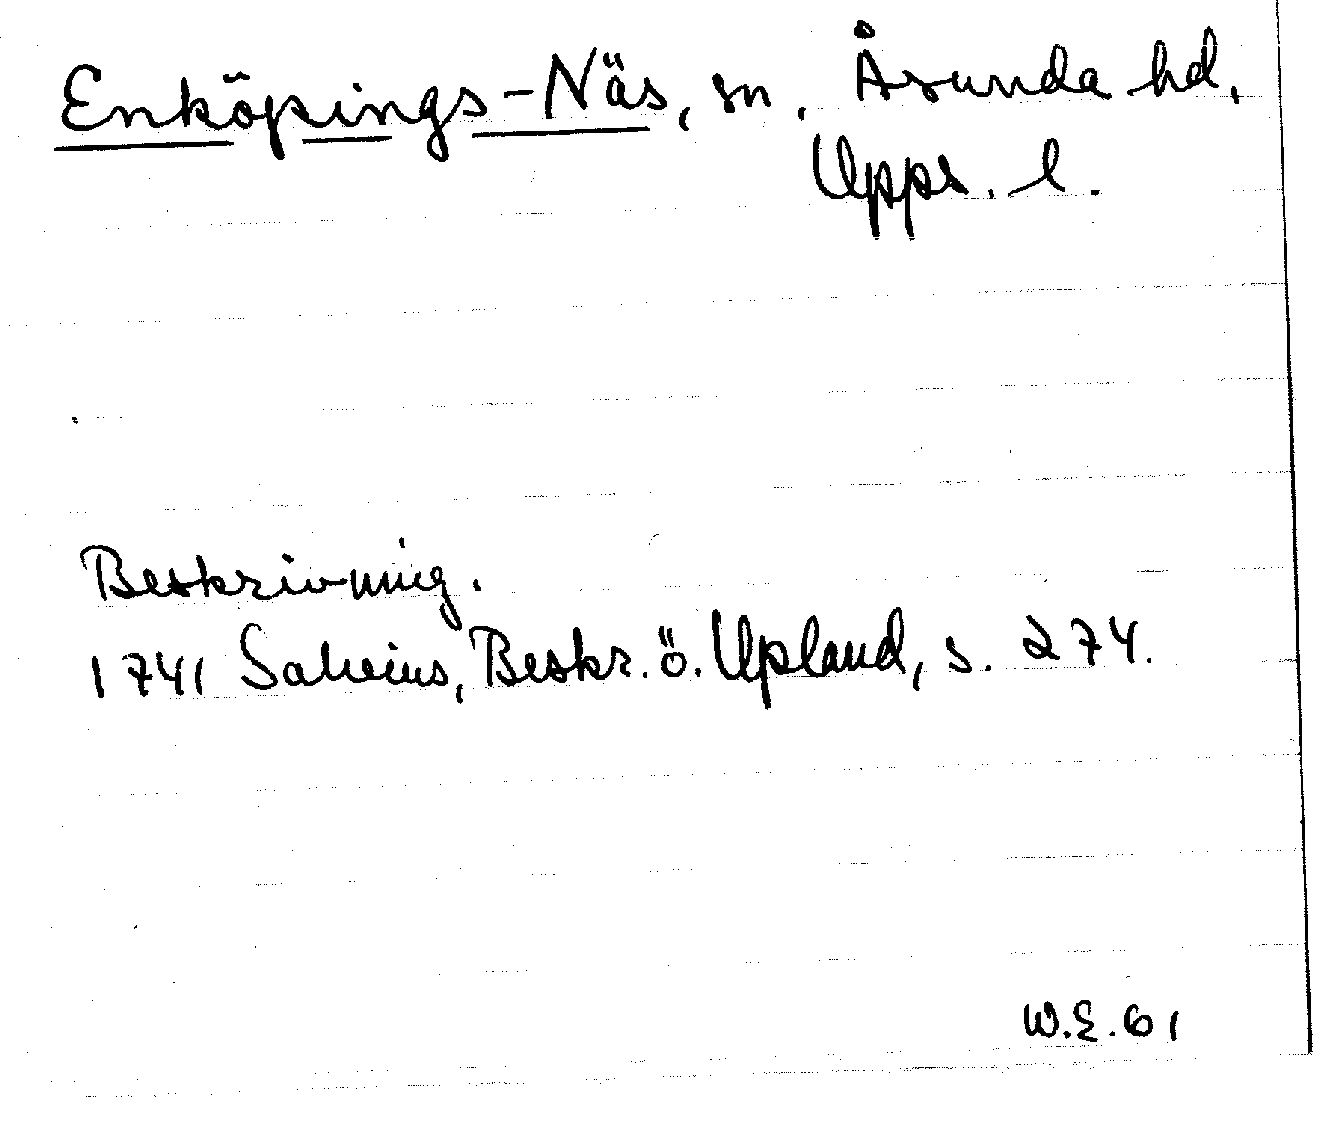 Enköpings-Näs, sn, Åsunda hd,
Upps. l.
Beskrivning.
1741 Salvius, Beskr. ö. Upland, s. 274.
W.E. 61